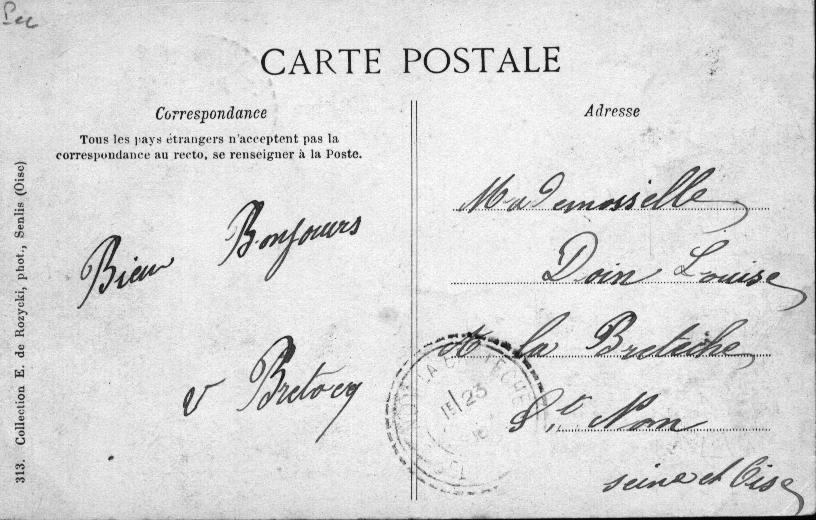 CARTE POSTALE
Correspondance
Tous les pays étrangers n'acceptent pas la
correspondance au recto, se renseigner à la Poste.
Bien Bonjours
v Bretocq
Adresse
Mademosselle
Doin Louise
A la Bretèche
St Nom
seine et Oise
313. Collection E. de Rozycki, phot., Senlis (Oise)